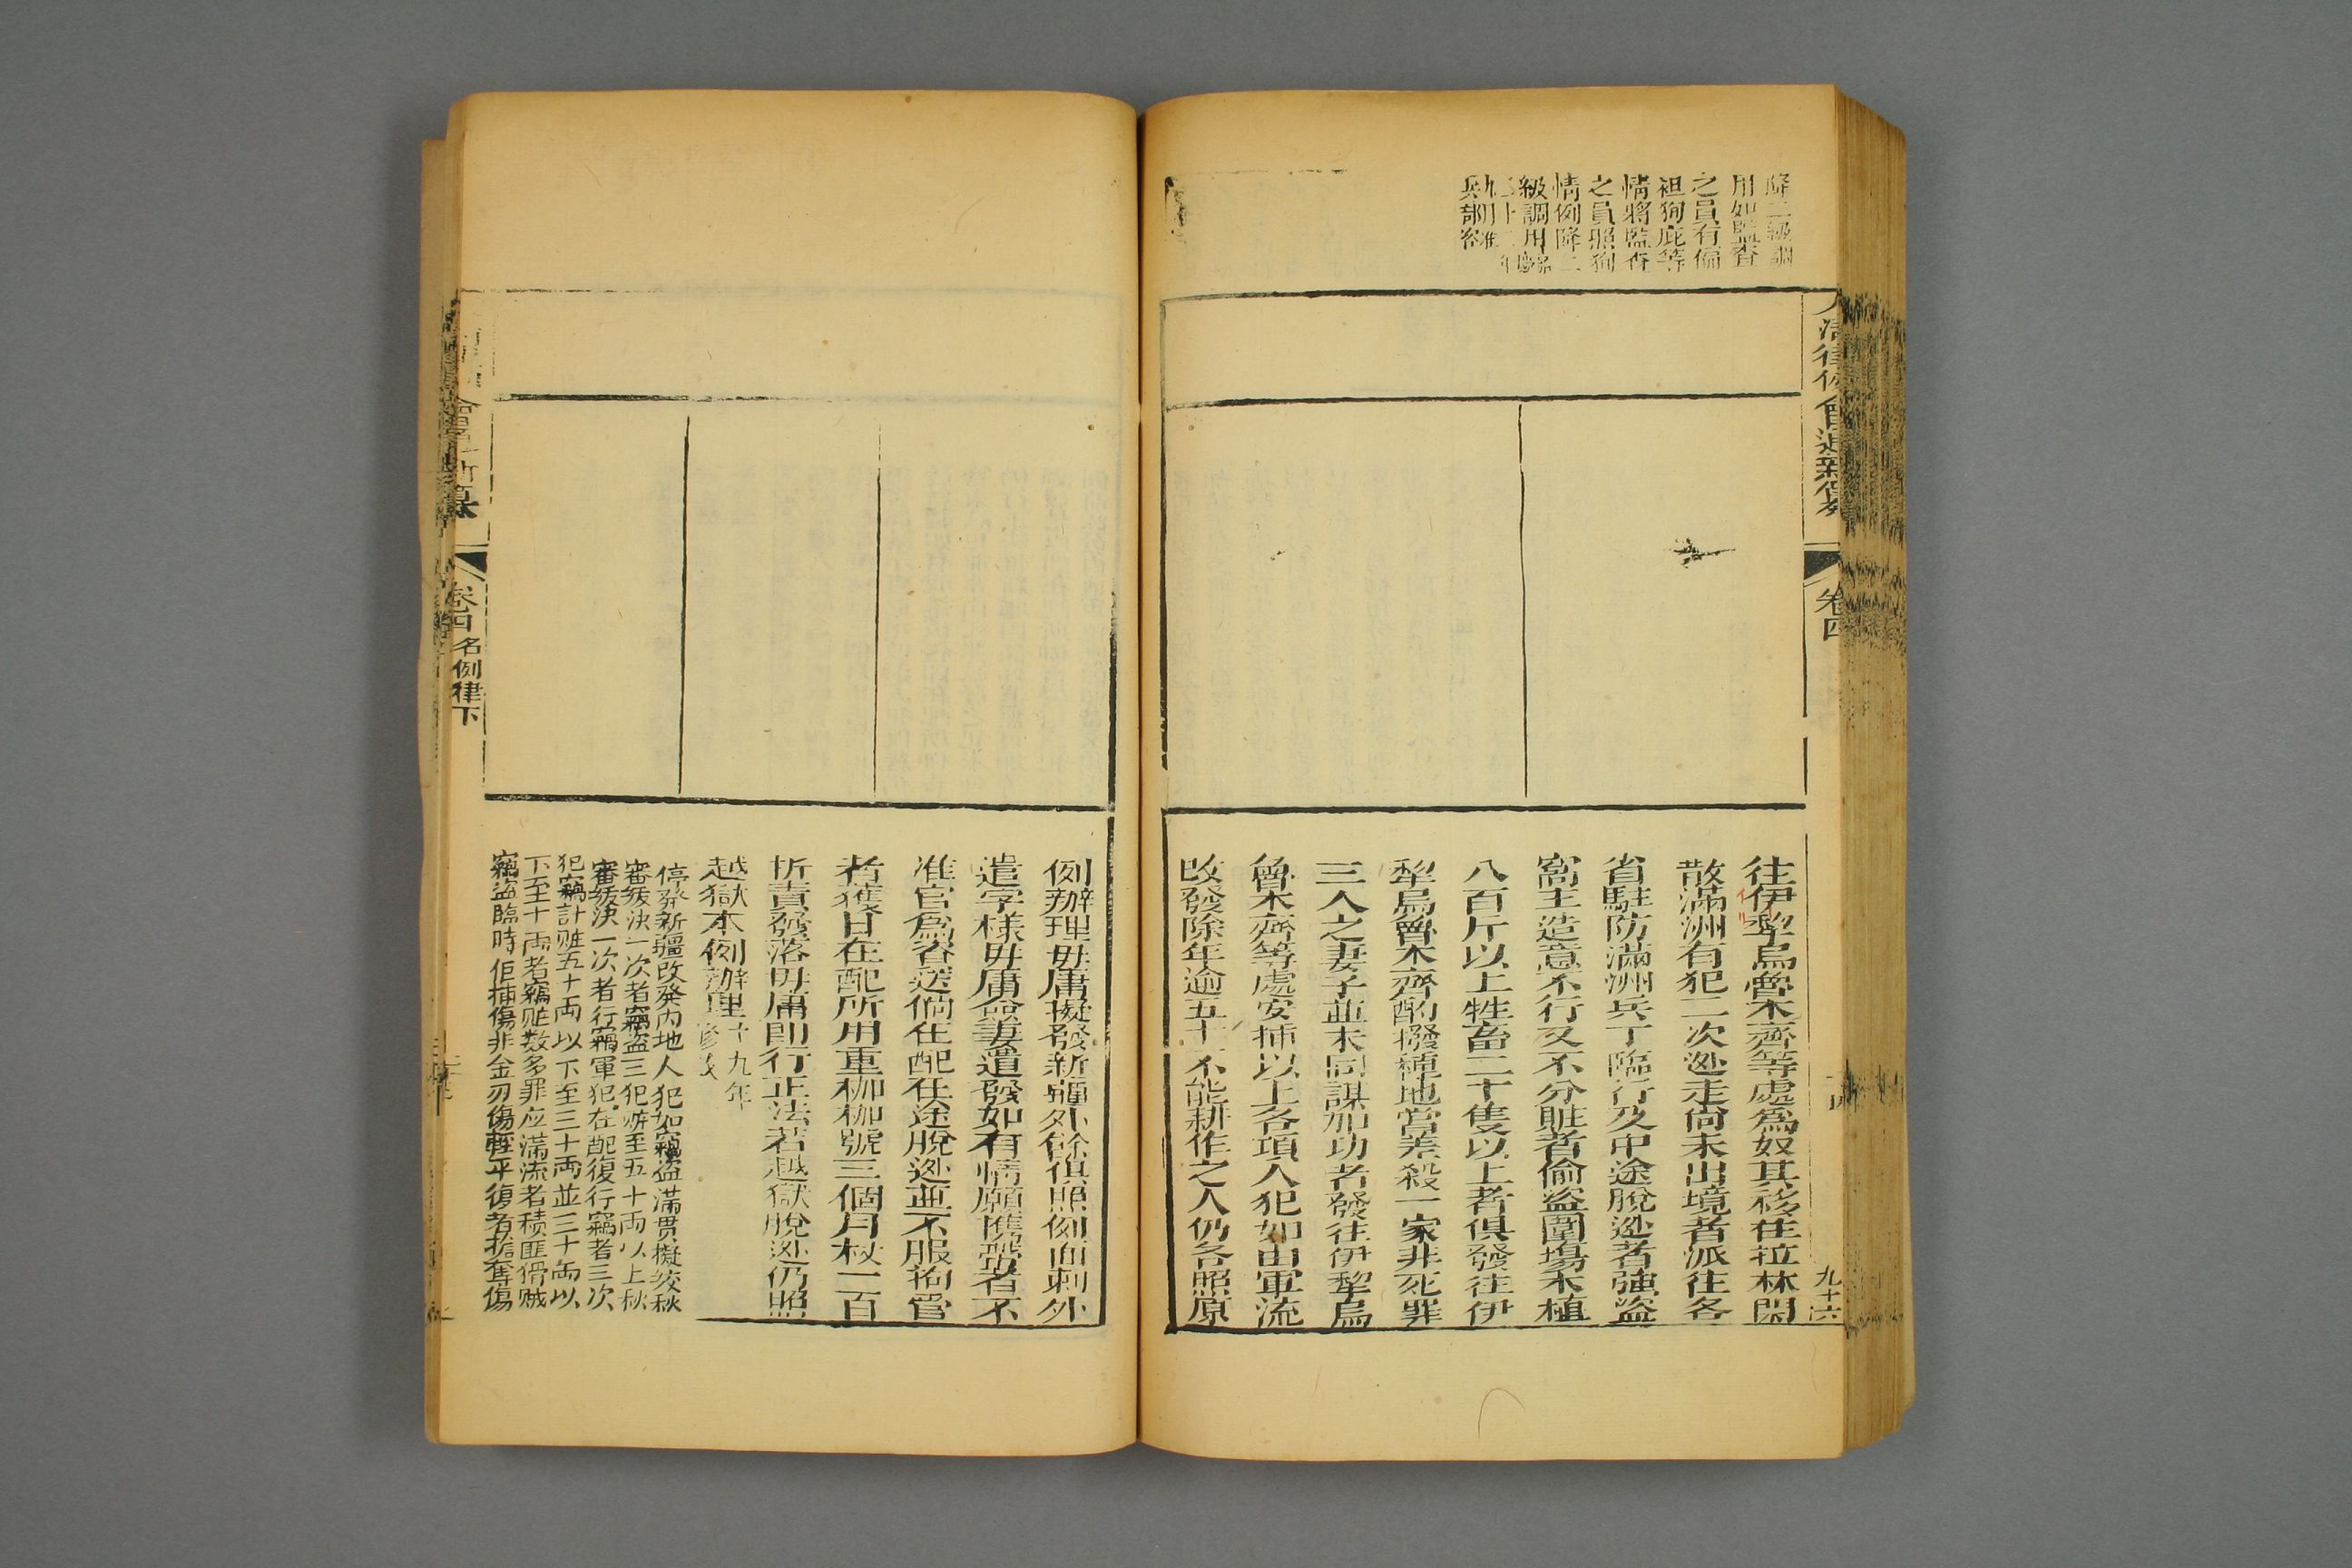 降二級調
用如監督
之員有偏
袒狥庇等
情將監督
之員照狥
情例降二
級調用
兵部咨
大清律例會通新纂
卷四
九十六
往伊犂烏魯木齊等處爲奴其移住拉林閑
散滿洲有犯二次逊走尚未出境者派往各
省駐防滿洲兵丁臨行及中途脫逊者強盜
窩主造意不行又不分賍者偷盜圍塲木植
八百斤以上牲畜二十隻以上者俱發往伊
犂烏魯木齊酌撥種地當差殺一家非死罪
三人之妻子並未同謀加功者發往伊犂烏
魯木齊等處安揷以上各項人犯如由軍流
改發除年逾五十不能耕作之人仍各照原
例辦理毋庸擬發新疆外餘俱照例面刺外
遣字樣毋庸僉妻遣發如有情願携帶者不
准官爲咨送倘在配在途脫逊並不服拘管
者獲日在配所用重枷枷號三個月杖一百
折責發落毋庸卽行正法若越獄脫逊仍照
越獄本例辦理十九年修改
停發新疆改發內地人犯如竊盜滿貫擬絞秋
審緩決一次者竊盜三犯賍至五十両以上秋
審緩決一次者行竊軍犯在配復行竊者三次
犯竊計賍五十両以下至三十両並三十両以
下至十両者竊賍数多罪应滿流者積匪猾賊
竊盜臨時拒捕傷非金刃傷輕平復者搶奪傷
卷四 名例律下